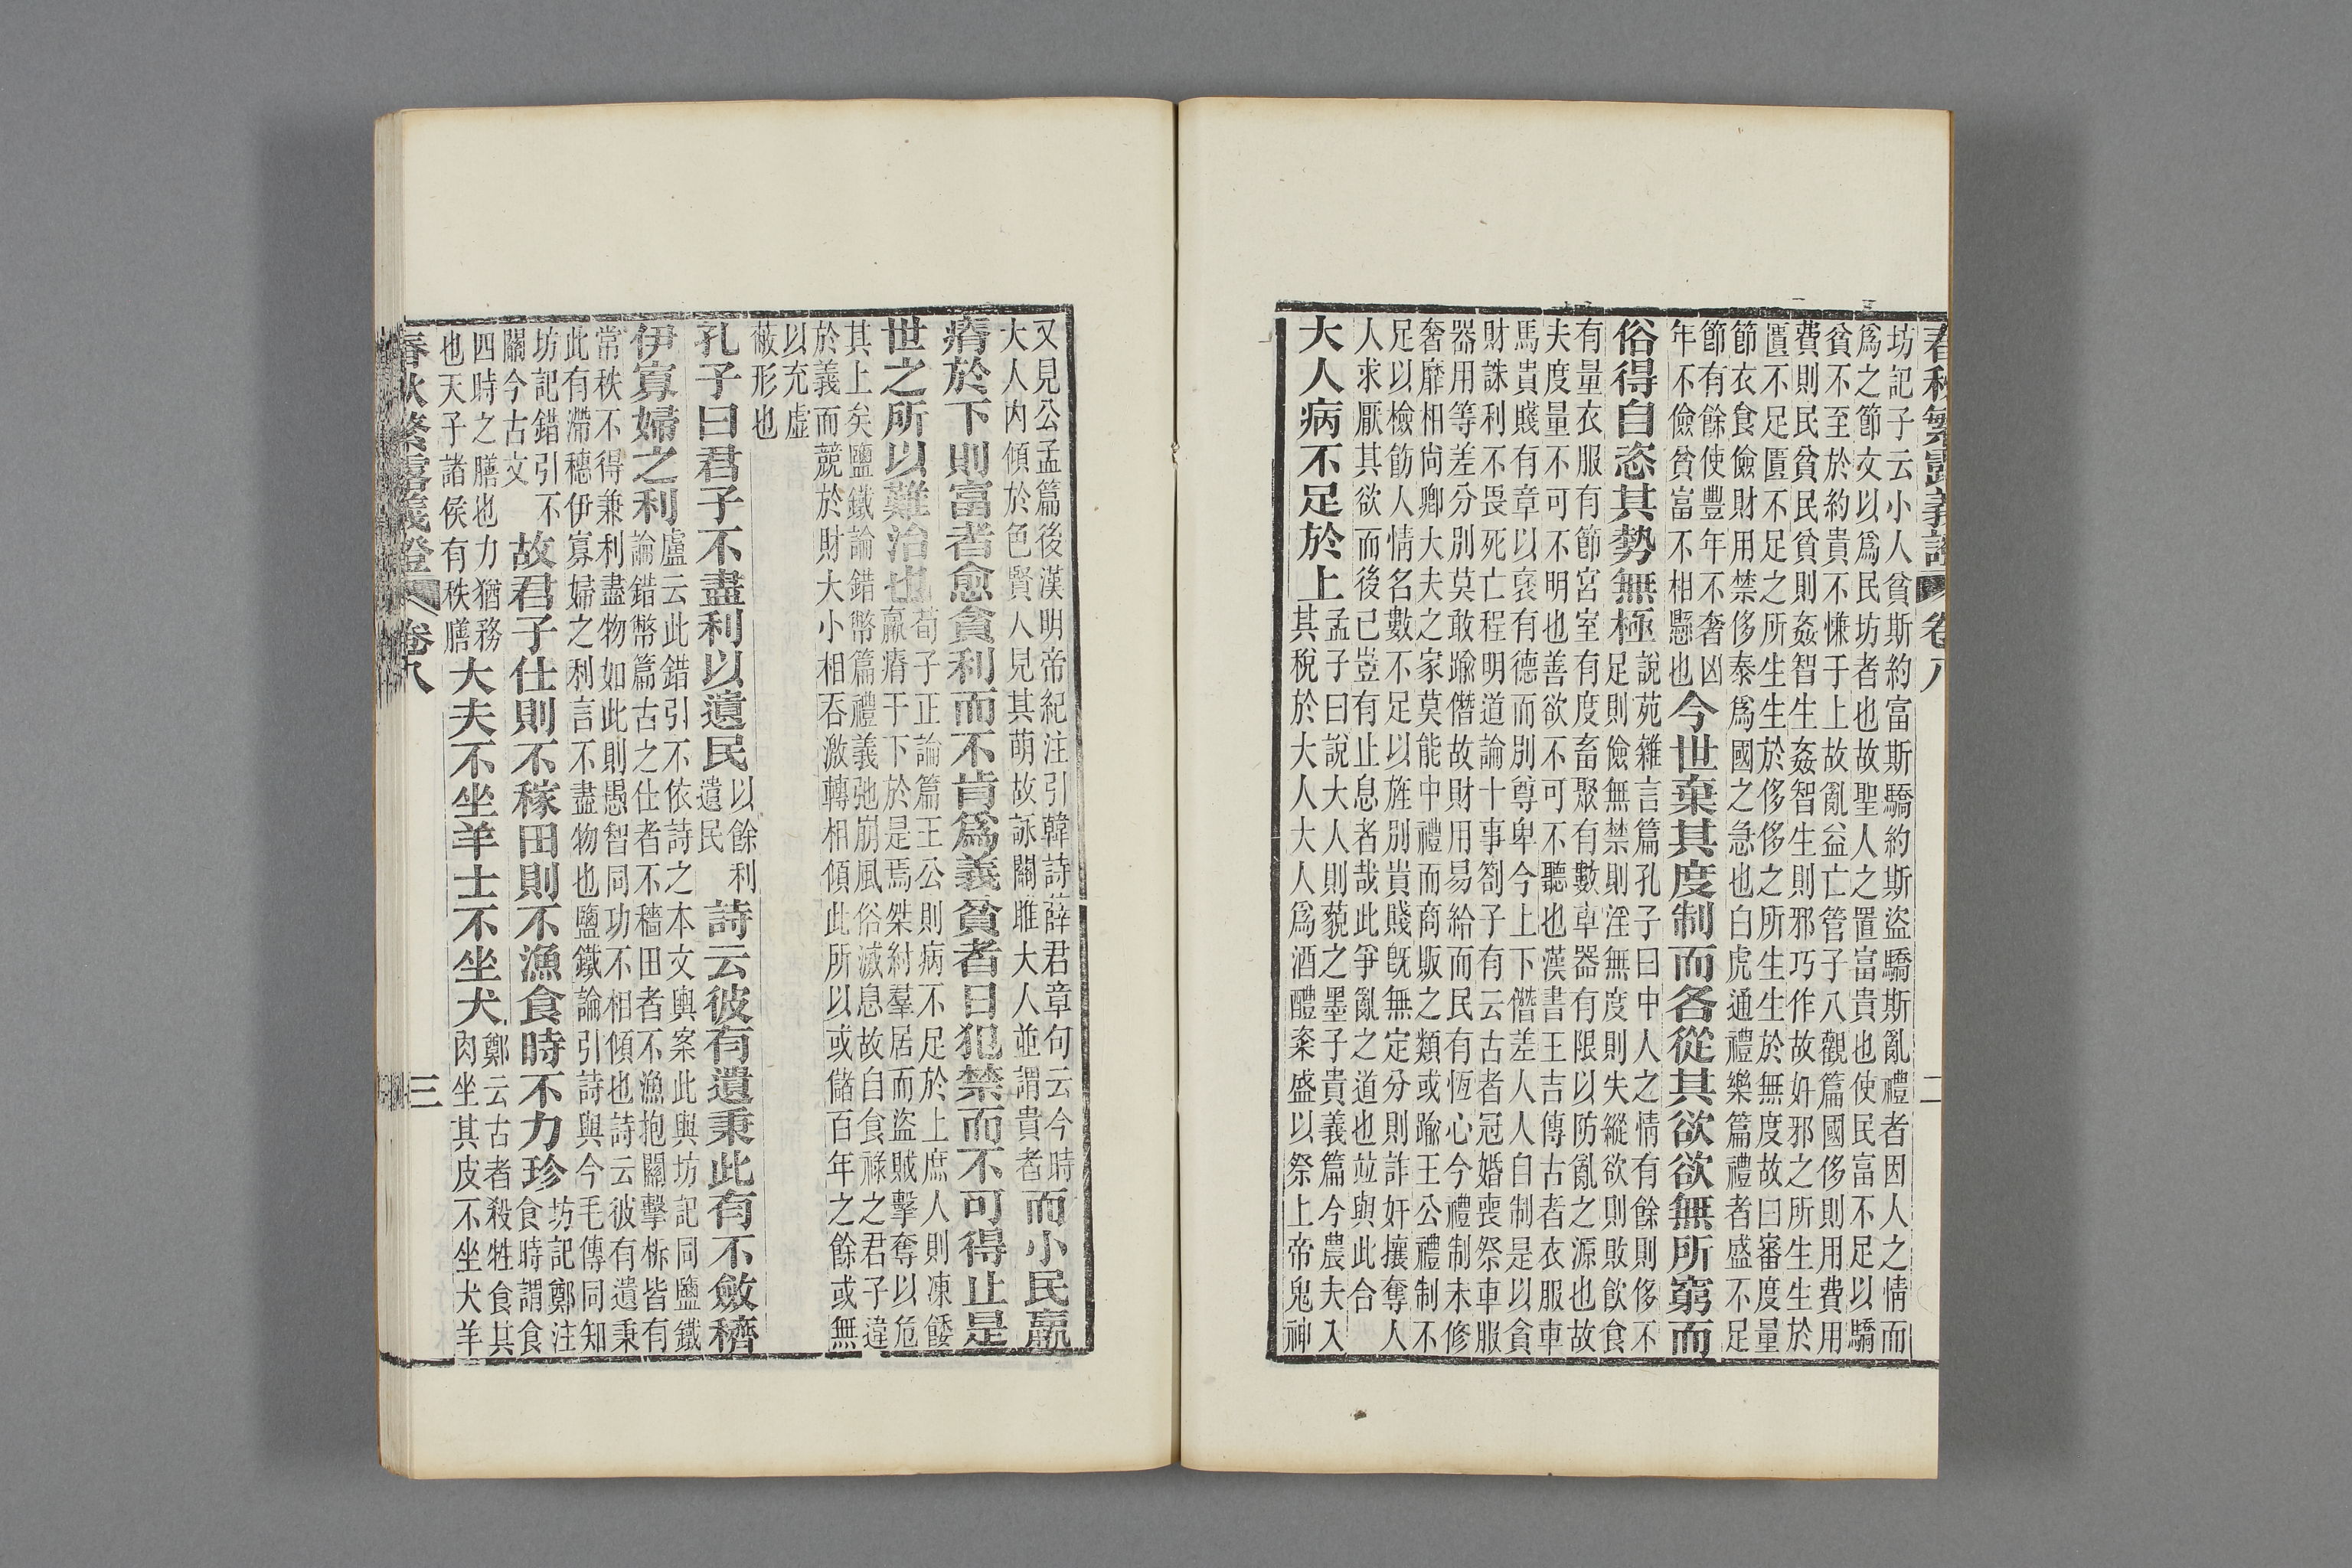 春秋繁露義證 卷八 二
坊記子云小人貧斯約富斯驕約斯盜驕斯亂禮者因人之情而
爲之節文以爲民坊者也故聖人之置富貴也使民富不足以驕
貧不至於約貴不慊于上故亂益亡管子八觀篇國侈則用費用
費則民貧民貧則姦智生姦智生則邪巧作故奸邪之所生生於
匱不足匱不足之所生生於侈侈之所生生於無度故曰審度量
節衣食儉財用禁侈泰爲國之急也白虎通禮樂篇禮者盛不足
節有餘使豐年不奢凶
年不儉貧富不相懸也
今世棄其度制而各從其欲欲無所窮而
俗得自恣其勢無極
說苑雜言篇孔子曰中人之情有餘則侈不
足則儉無禁則淫無度則失縱欲則敗飲食
有量衣服有節宮室有度畜聚有數車器有限以防亂之源也故
夫度量不可不明也善欲不可不聽也漢書王吉傳古者衣服車
馬貴賤有章以裦有德而別尊卑今上下僭差人人自制是以貪
財誅利不畏死亡程明道論十事劄子有云古者冠婚喪祭車服
器用等差分別莫敢踰僭故財用易給而民有恆心今禮制未修
奢靡相尙卿大夫之家莫能中禮而商販之類或踰王公禮制不
足以檢飭人情名數不足以旌別貴賤旣無定分則詐奸攘奪人
人求厭其欲而後已豈有止息者哉此爭亂之道也竝與此合
大人病不足於上
孟子曰說大人則藐之墨子貴義篇今農夫入
其稅於大人大人爲酒醴粢盛以祭上帝鬼神
又見公孟篇後漢明帝紀注引韓詩薛君章句云今時
大人內傾於色賢人見其萌故詠關雎大人並謂貴者
而小民羸
瘠於下則富者愈貪利而不肯爲義貧者日犯禁而不可得止是
世之所以難治也
荀子正論篇王公則病不足於上庶人則凍餧
羸瘠于下於是焉桀紂羣居而盜賊擊奪以危
其上矣鹽鐵論錯幣篇禮義弛崩風俗滅息故自食祿之君子違
於義而競於財大小相吞激轉相傾此所以或儲百年之餘或無
以充虛
蔽形也
孔子曰君子不盡利以遺民
以餘利
遺民
詩云彼有遺秉此有不斂穧
伊寡婦之利
盧云此錯引不依詩之本文輿案此與坊記同鹽鐵
論錯幣篇古之仕者不穡田者不漁抱關擊柝皆有
常秩不得兼利盡物如此則愚智同功不相傾也詩云彼有遺秉
此有滯穗伊寡婦之利言不盡物也鹽鐵論引詩與今毛傳同知
坊記錯引不
關今古文
故君子仕則不稼田則不漁食時不力珍
坊記鄭注
食時謂食
四時之膳也力猶務
也天子諸侯有秩膳
大夫不坐羊士不坐犬
鄭云古者殺牲食其
肉坐其皮不坐犬羊
春秋繁露義證 卷八 三